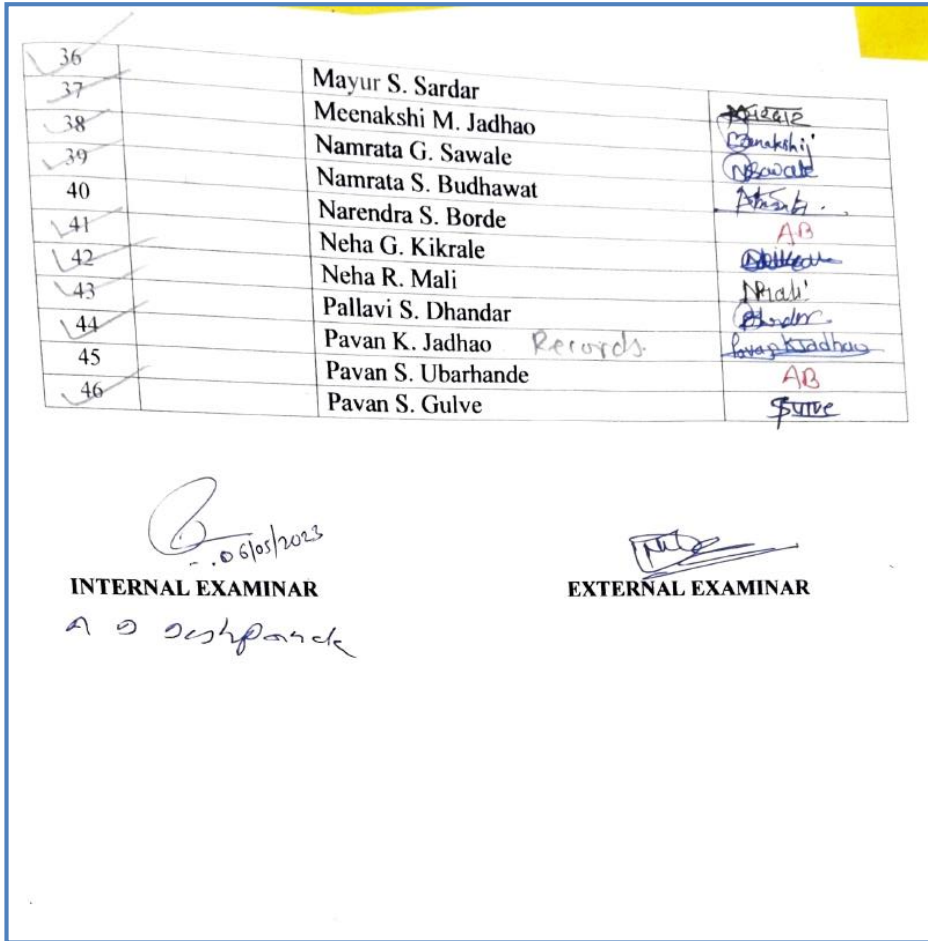 36 Mayur S. Sardar
37 Meenakshi M. Jadhao
38 Namrata G. Sawale NSawale
39 Namrata S. Budhawat
40 Narendra S. Borde AB
41 Neha G. Kikrale
42 Neha R. Mali
43 Pallavi S. Dhandar
44 Pavan K. Jadhao Records. PavanKJadhao
45 Pavan S. Ubarhande AB
46 Pavan S. Gulve
06/05/2023
INTERNAL EXAMINAR EXTERNAL EXAMINAR
A D Deshpande